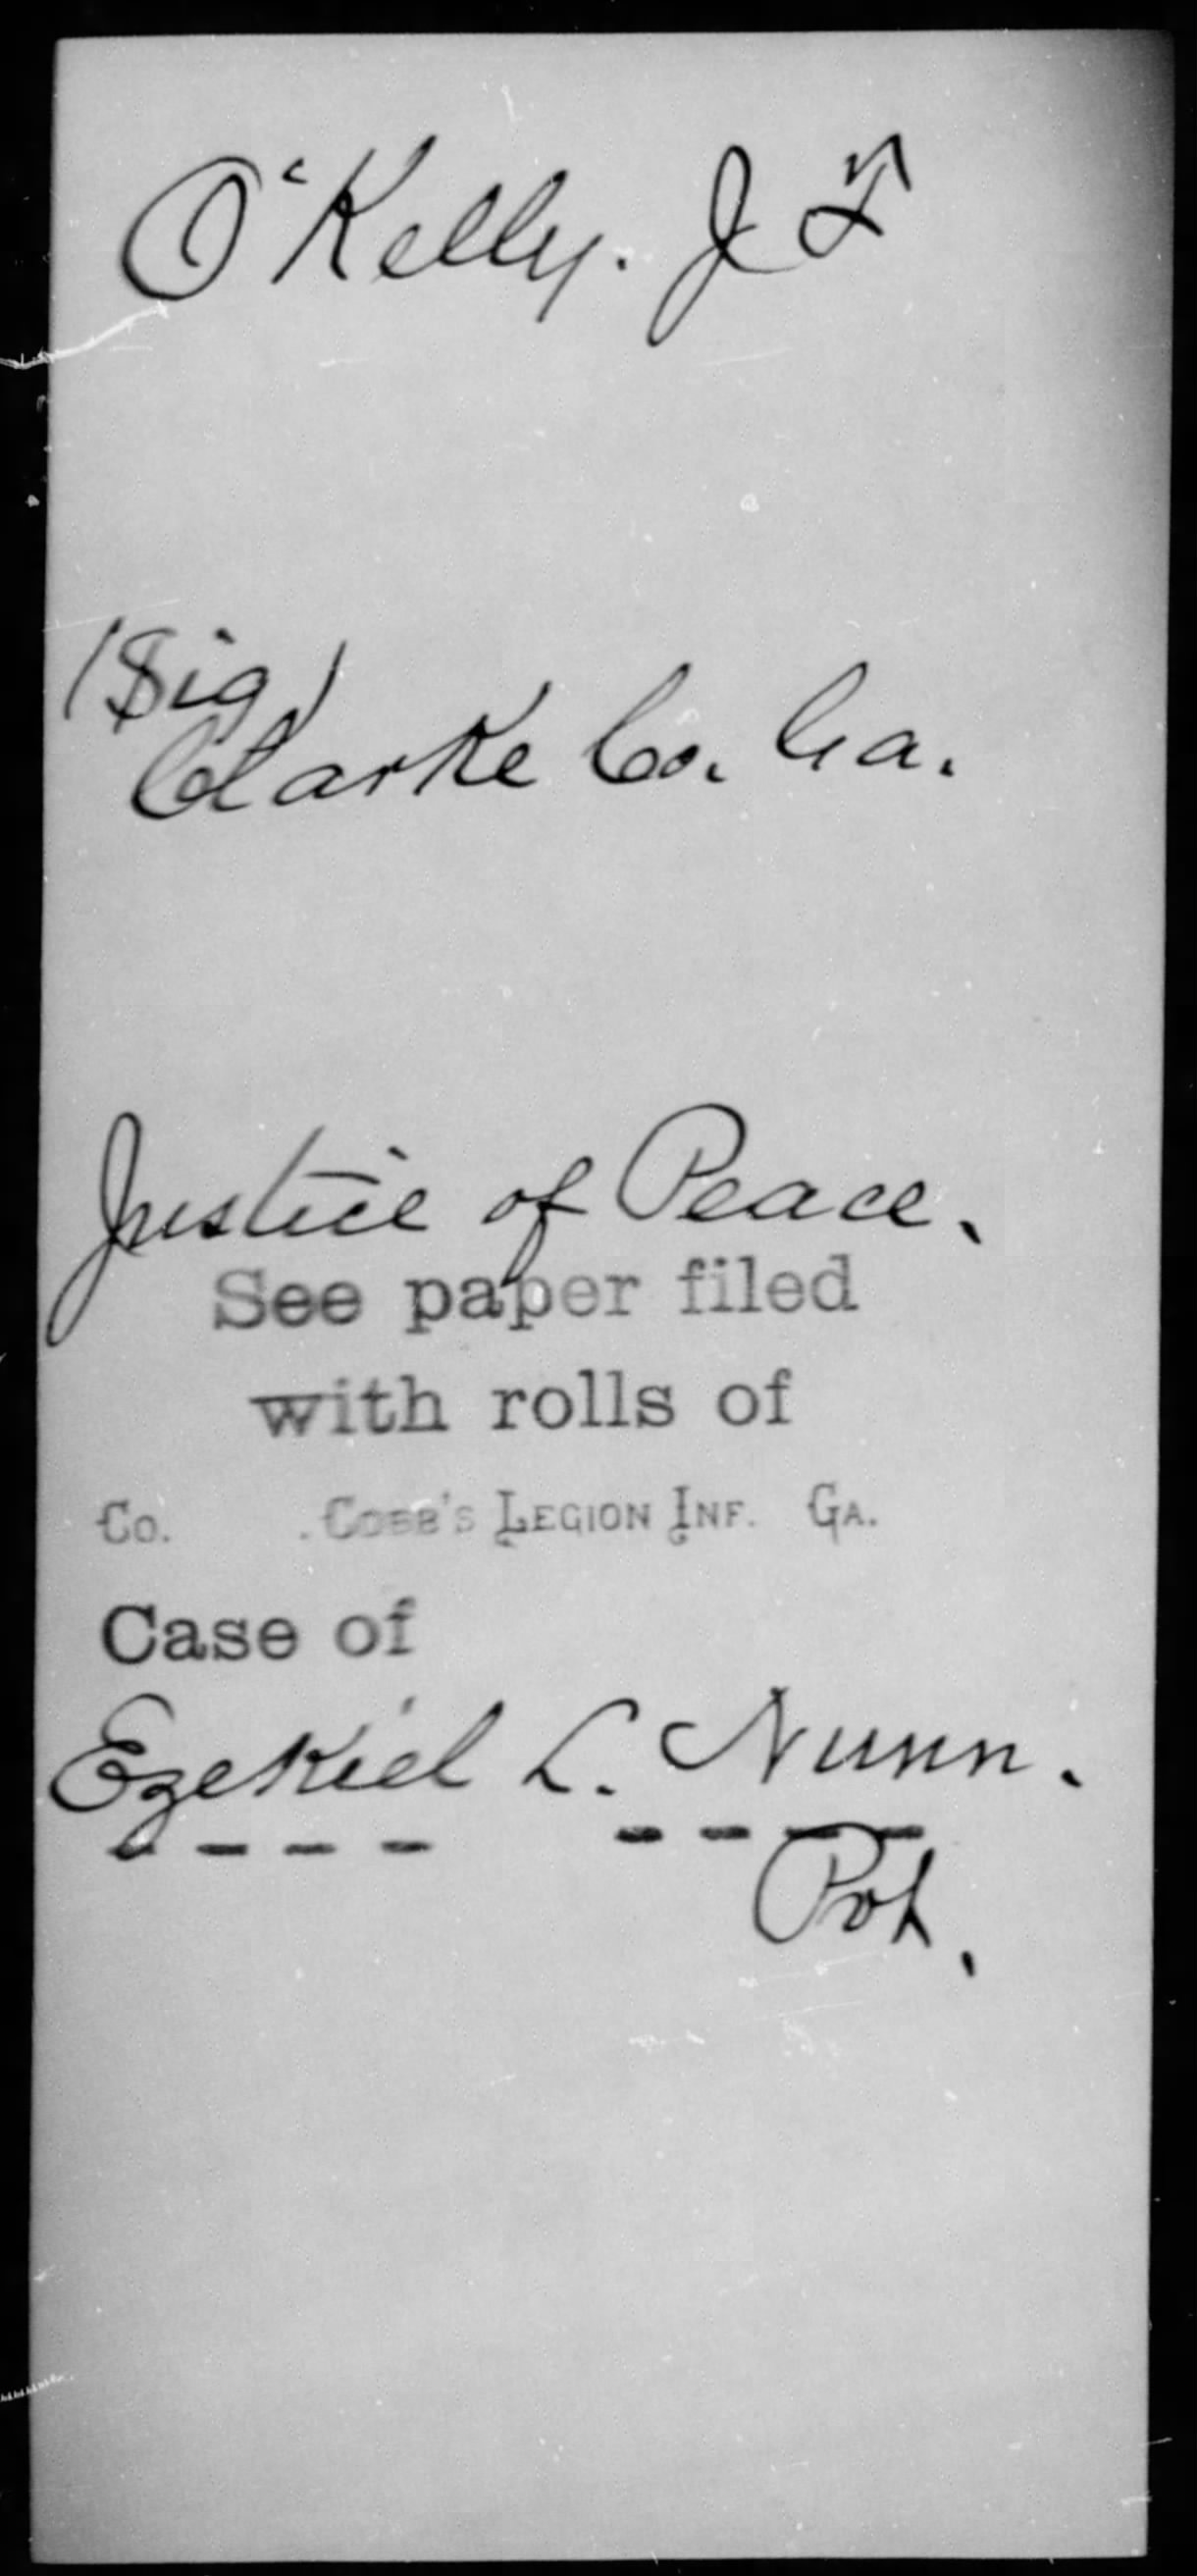 O'Kelly. J F
(Sig)
Clarke Co. Ga.
Justice of Peace.
See paper filed
with rolls of
Co. . Cobb's Legion Inf. Ga.
Case of
Ezekiel L. Nunn.
Pvt.